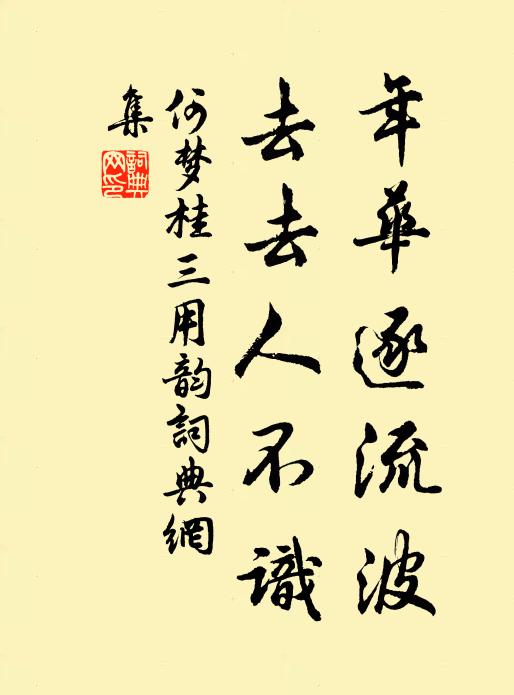 年華逐流波
去去人不識
何梦桂三用韵詞典網
集
詞典網印